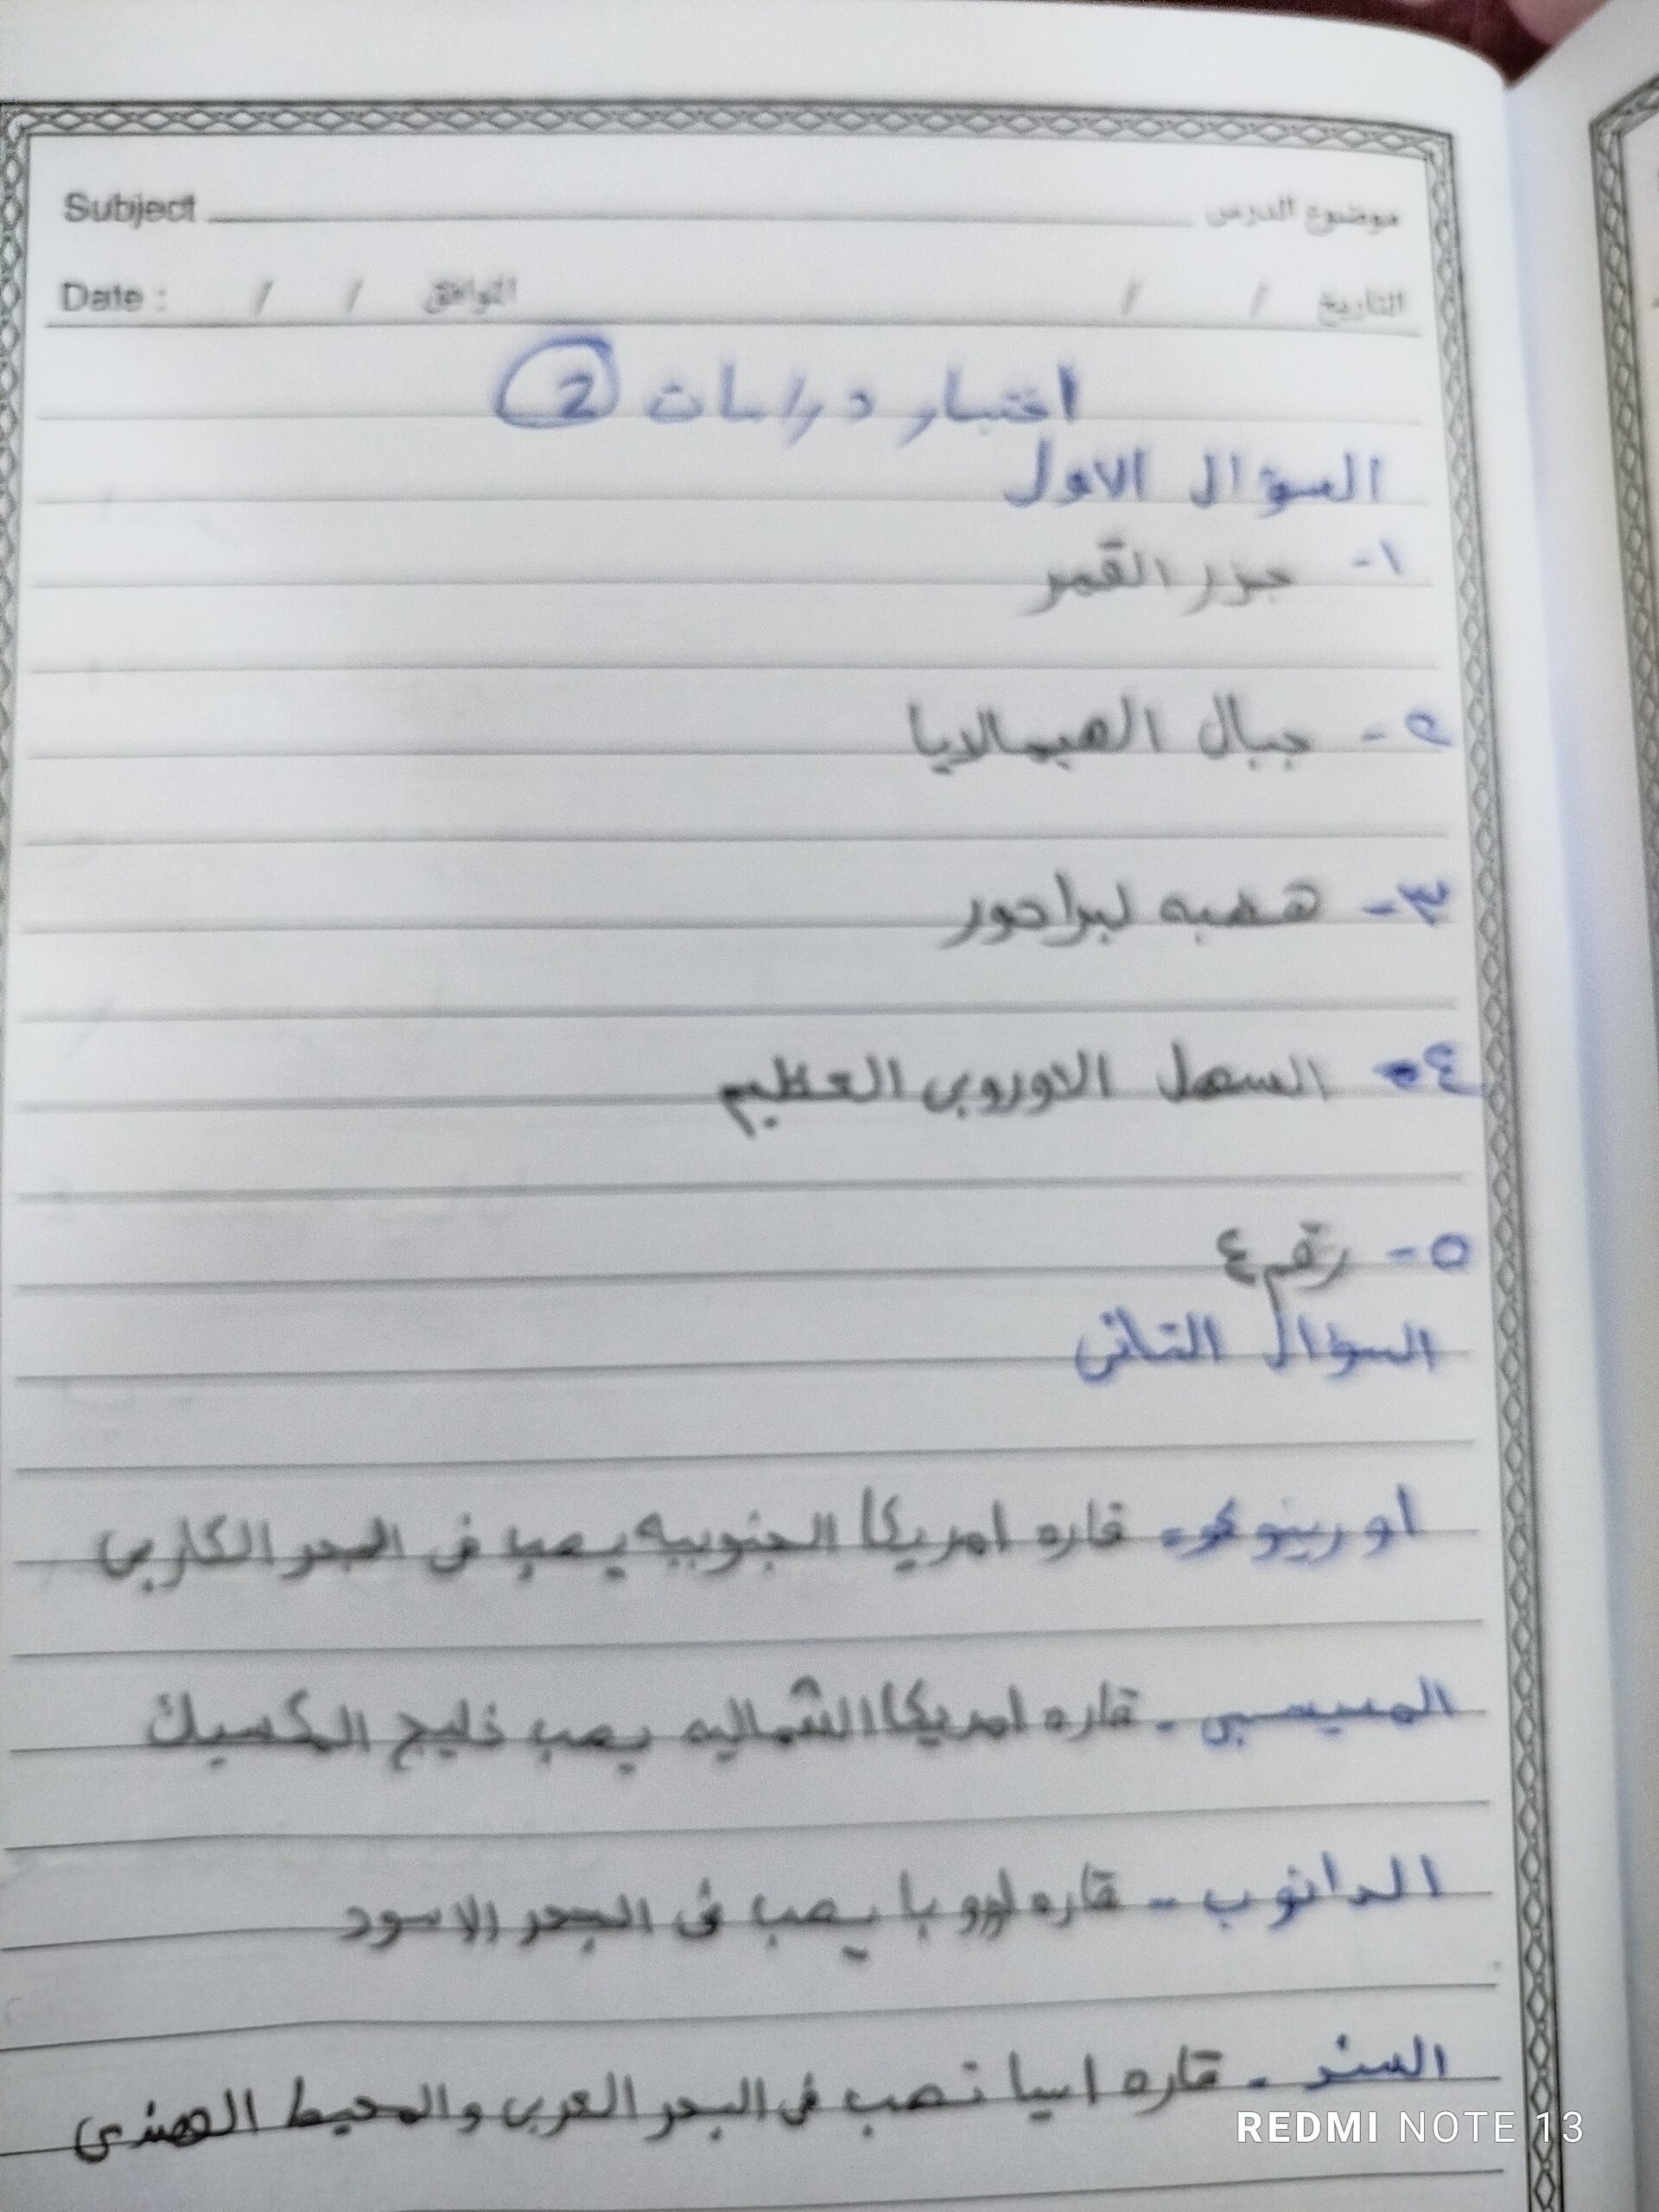 Subject موضوع الدرس
Date : / / التوافق / / التاريخ
اختبار دراسات 2
السؤال الاول
١- جزر القمر
٢- جبال الهيمالايا
٣- هضبه لبرادور
٤- السهل الاوروبى العظيم
٥- رقم ٤
السؤال الثانى
اورينوكو - قاره امريكا الجنوبيه يصب فى البحر الكاريبى
المسيسبى - قاره امريكا الشماليه يصب خليج المكسيك
الدانوب - قاره اوروبا يصب فى البحر الاسود
السند - قاره اسيا تصب فى البحر العربى والمحيط الهندى
REDMI NOTE 13